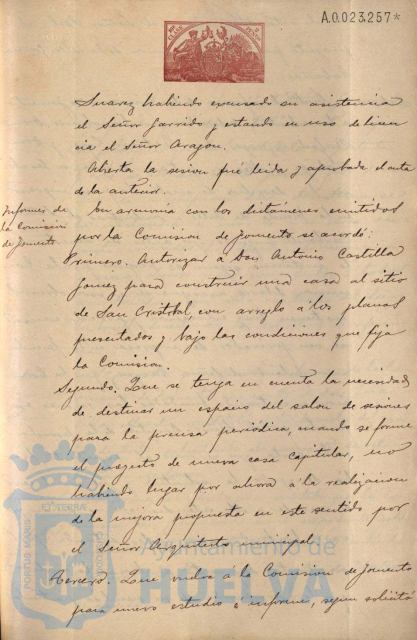 A.0.023.257*
Suarez habiendo escusado su asistencia
el Señor Garrido y estando en uso de licen
cia el Señor Aragon.
Abierta la sesion fué leida y aprobada el acta
de la anterior.
Informes de
la Comision
de Fomento
En armonia con los dictámenes emitidos
por la Comision de Fomento se acordó:
Primero. Autorizar á Don Antonio Castilla
Gomez para construir una casa al sitio
de San Cristobal, con arreglo á los planos
presentados y bajo las condiciones que fija
la Comision.
Segundo. Que se tenga en cuenta la necesidad
de destinar un espacio del salon de sesiones
para la prensa periódica, cuando se forme
el proyecto de nueva casa capitular, no
habiendo lugar por ahora á la realizacion
de la mejora propuesta en este sentido por
el Señor Arquitecto municipal.
Tercero. Que vuelva á la Comision de Fomento
para nuevo estudio é informe, segun solicitó
Ayuntamiento de
HUELVA